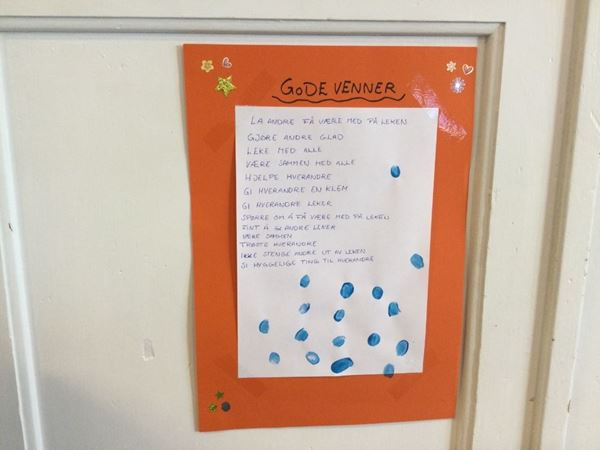 GODE VENNER
LA ANDRE FÅ VÆRE MED PÅ LEKEN
GJØRE ANDRE GLAD
LEKE MED ALLE
VÆRE SAMMEN MED ALLE
HJELPE HVERANDRE
GI HVERANDRE EN KLEM
GI HVERANDRE LEKER
SPØRRE OM Å FÅ VÆRE MED PÅ LEKEN
FINT Å GI ANDRE LEKER
VÆRE SAMMEN
TRØSTE HVERANDRE
IKKE STENGE ANDRE UT AV LEKEN
SI HYGGELIGE TING TIL HVERANDRE